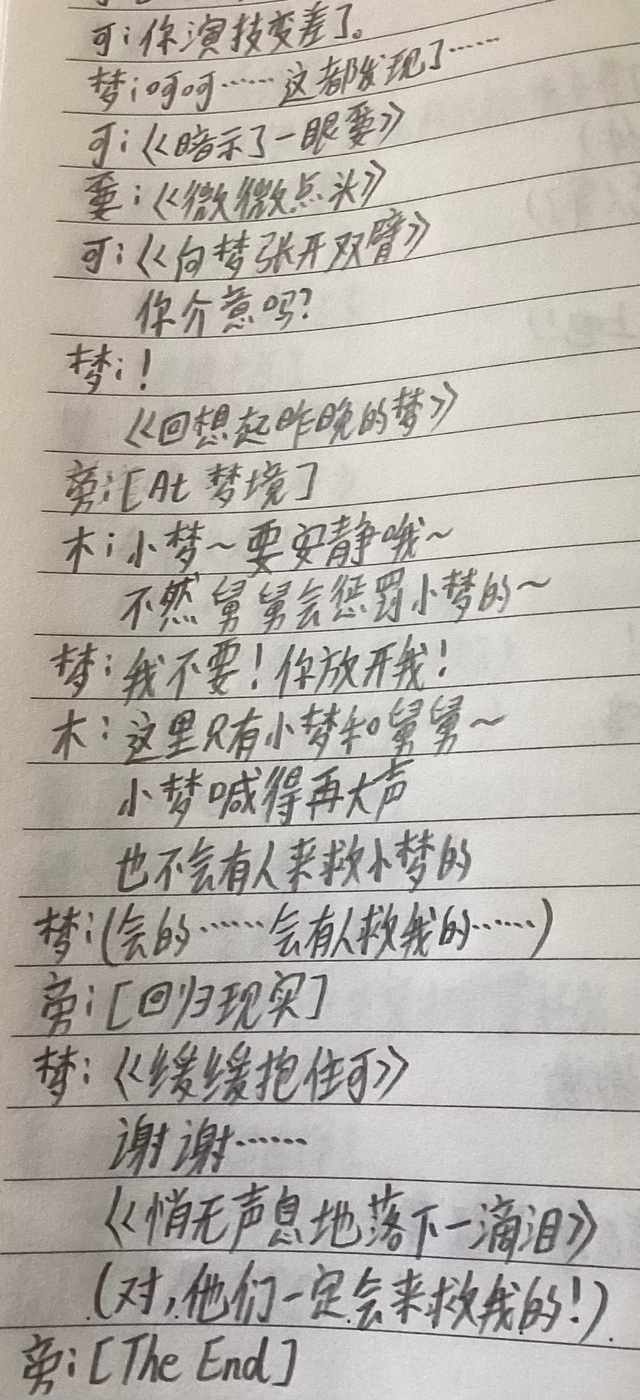 可:你演技变差了。
梦:呵呵……这都发现了……
可:《暗示了一眼要》
要:《微微点头》
可:《向梦张开双臂》
你介意吗?
梦:!
《回想起昨晚的梦》
旁:[At 梦境]
木:小梦~要安静哦~
不然舅舅会惩罚小梦的~
梦:我不要!你放开我!
木:这里只有小梦和舅舅~
小梦喊得再大声
也不会有人来救小梦的
梦:(会的……会有人救我的……)
旁:[回归现实]
梦:《缓缓抱住可》
谢谢……
《悄无声息地落下一滴泪》
(对,他们一定会来救我的!)
旁:[The End]